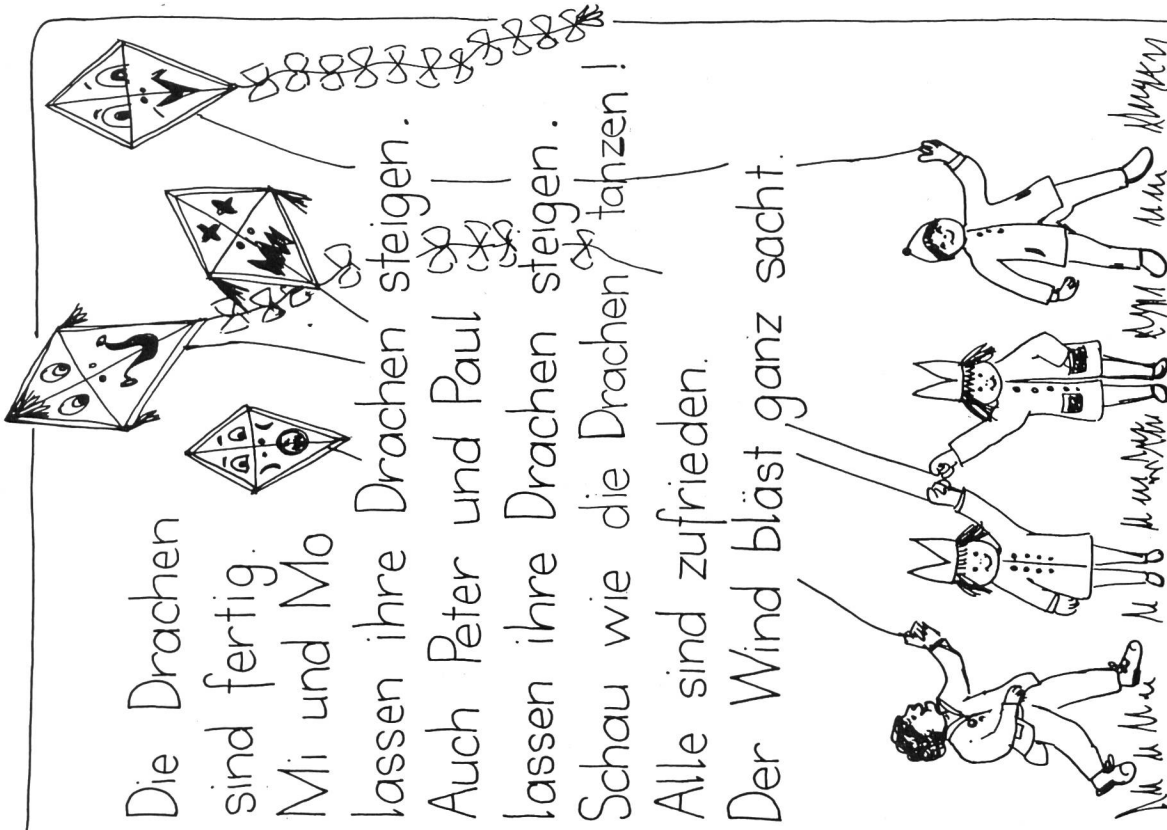 Die Drachen
sind fertig.
Mi und Mo
lassen ihre Drachen steigen.
Auch Peter und Paul
lassen ihre Drachen steigen.
Schau wie die Drachen tanzen!
Alle sind zufrieden.
Der Wind bläst ganz sacht.